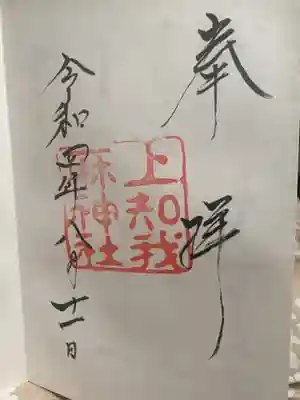 奉拝
上知我
麻神社
令和四年八月十一日